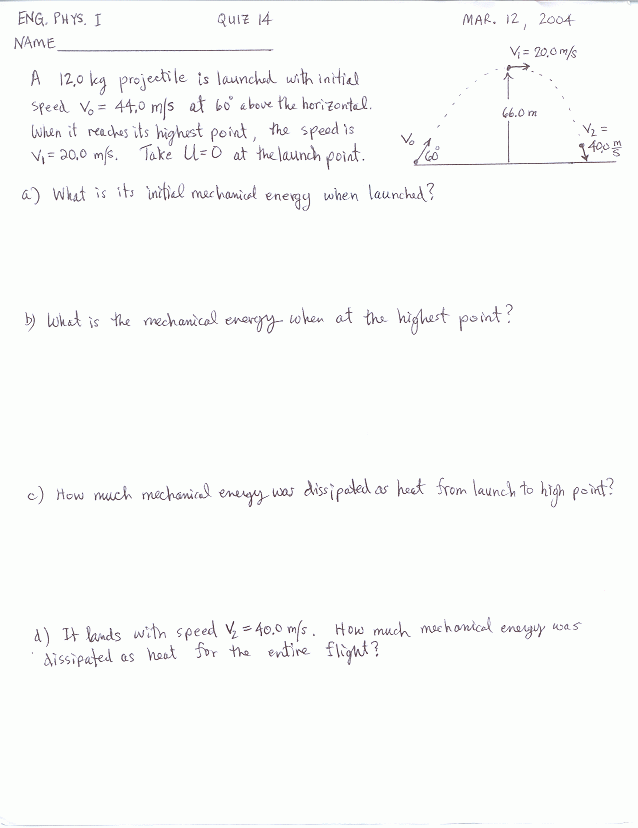 ENG. PHYS. I QUIZ 14 MAR. 12, 2004
NAME
A 12.0 kg projectile is launched with initial
speed V₀ = 44.0 m/s at 60° above the horizontal.
When it reaches its highest point, the speed is
V₁ = 20.0 m/s. Take U=0 at the launch point.
V₁ = 20.0 m/s
66.0 m
V₀
60°
V₂ =
40.0 m/s
a) What is its initial mechanical energy when launched?
b) What is the mechanical energy when at the highest point?
c) How much mechanical energy was dissipated as heat from launch to high point?
d) It lands with speed V₂ = 40.0 m/s. How much mechanical energy was
dissipated as heat for the entire flight?